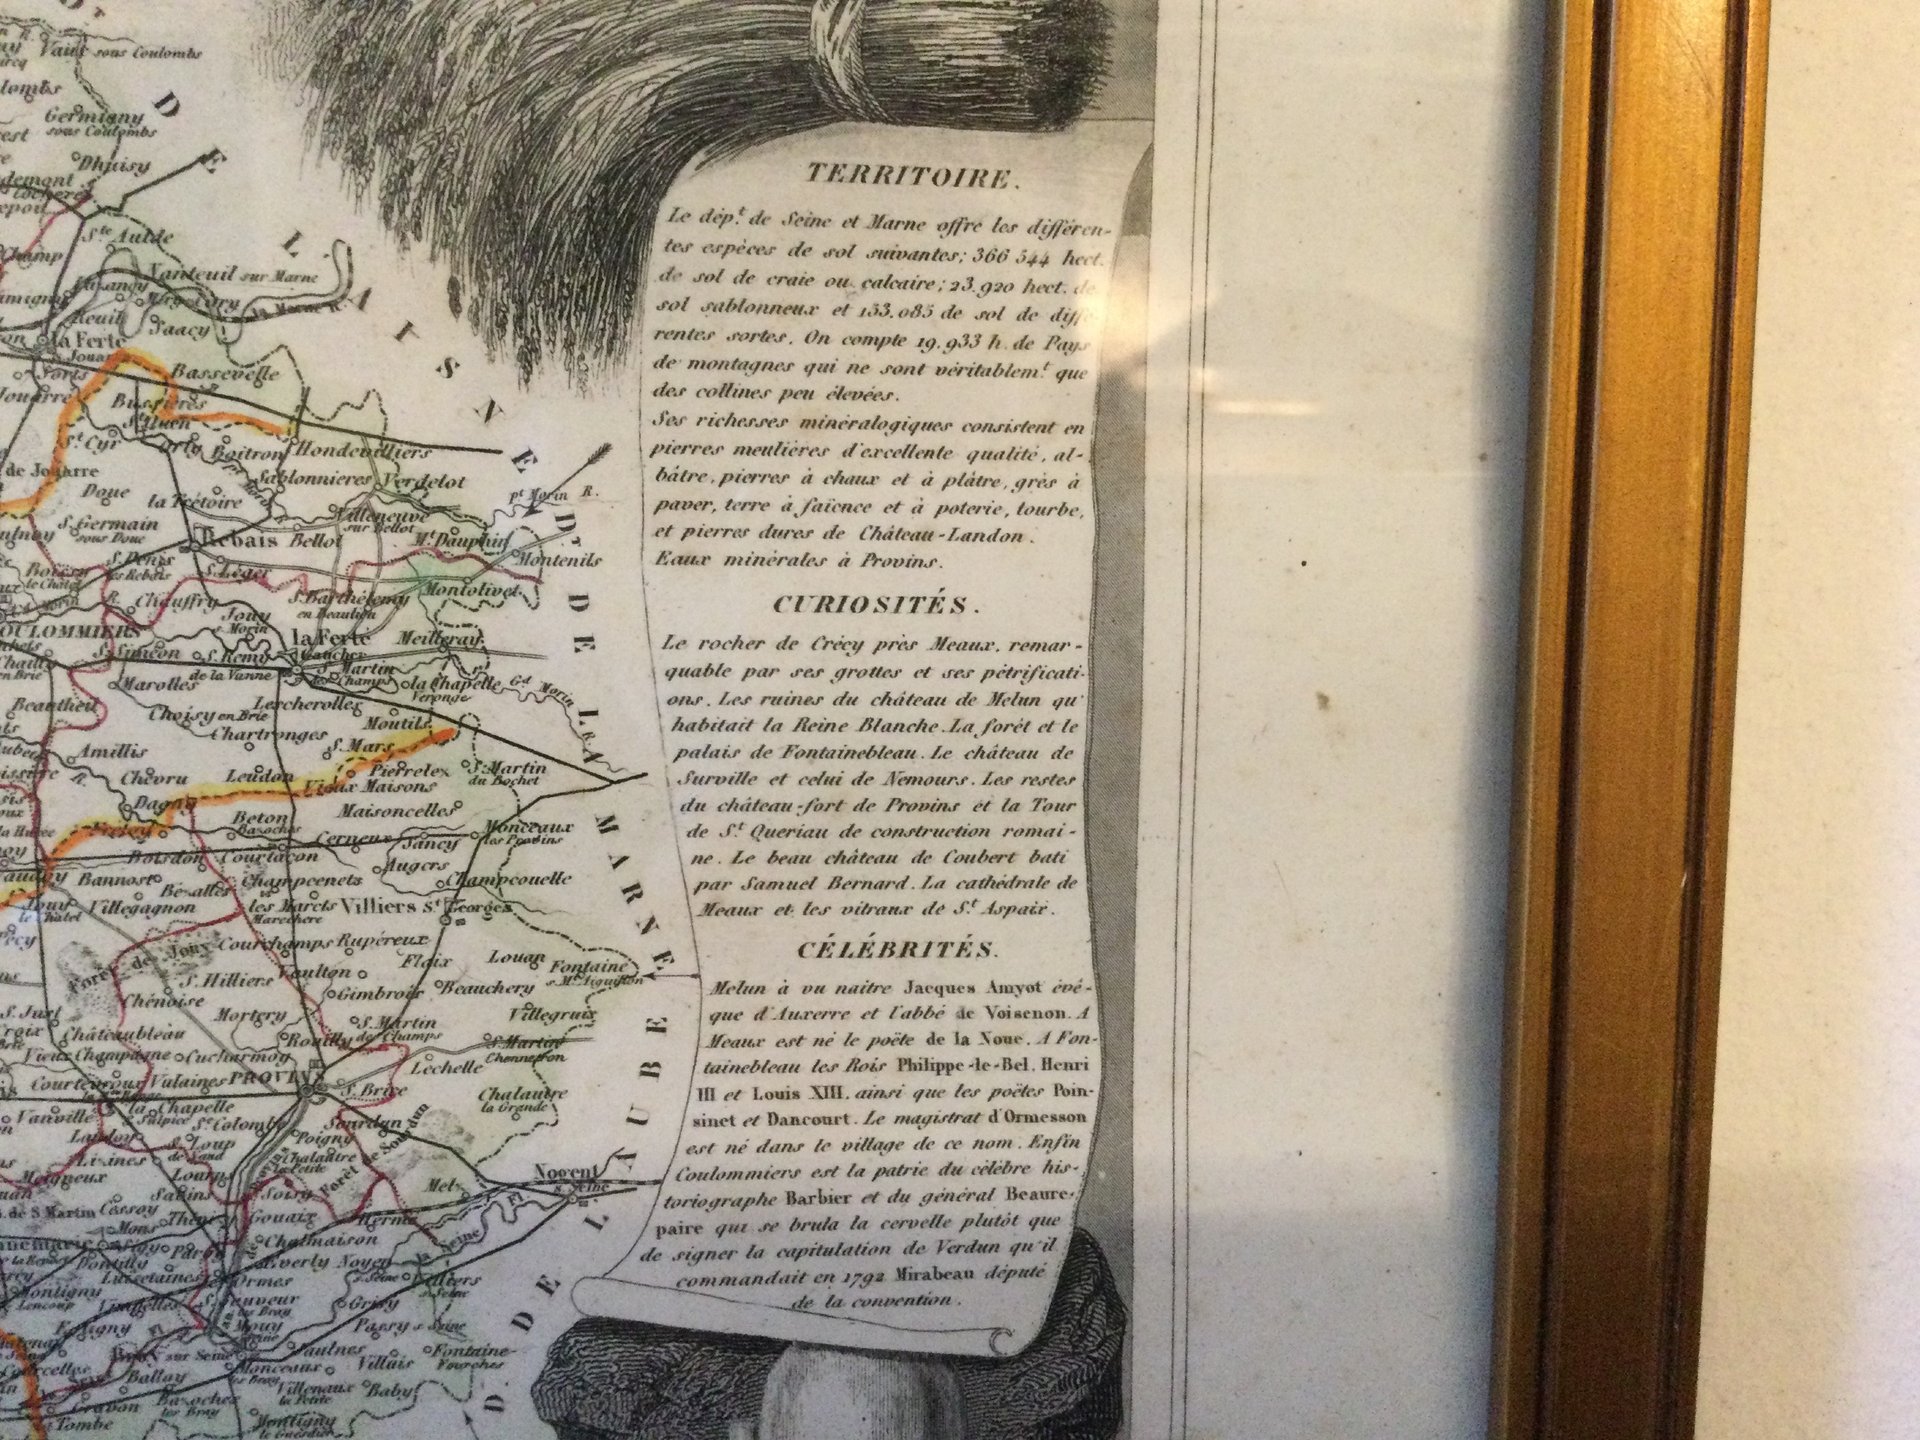 TERRITOIRE.
Le dép.t de Seine et Marne offre les différen-
tes espèces de sol suivantes; 366 544 hect.
de sol de craie ou calcaire; 23.920 hect. de
sol sablonneux et 133.085 de sol de diffé
rentes sortes. On compte 19.933 h. de Pays
de montagnes qui ne sont véritablem.t que
des collines peu élevées.
Ses richesses minéralogiques consistent en
pierres meulières d'excellente qualité, al-
bâtre, pierres à chaux et à plâtre, grès à
paver, terre à faïence et à poterie, tourbe,
et pierres dures de Château-Landon.
Eaux minérales à Provins.
CURIOSITÉS.
Le rocher de Crécy près Meaux, remar-
quable par ses grottes et ses pétrificati-
ons. Les ruines du château de Melun qu'
habitait la Reine Blanche. La forêt et le
palais de Fontainebleau. Le château de
Surville et celui de Nemours. Les restes
du château-fort de Provins et la Tour
de St. Queriau de construction romai-
ne. Le beau château de Coubert bati
par Samuel Bernard. La cathédrale de
Meaux et les vitraux de St. Aspair.
CÉLÉBRITÉS.
Melun à vu naitre Jacques Amyot évê-
que d'Auxerre et l'abbé de Voisenon. A
Meaux est né le poëte de la Noue. A Fon-
tainebleau les Rois Philippe-le-Bel, Henri
III et Louis XIII. ainsi que les poëtes Poin-
sinet et Dancourt. Le magistrat d'Ormesson
est né dans le village de ce nom. Enfin
Coulommiers est la patrie du célèbre his-
toriographe Barbier et du général Beaure-
paire qui se brula la cervelle plutôt que
de signer la capitulation de Verdun qu'il
commandait en 1792 Mirabeau député
de la convention.
D. DE L'AISNE
D.t DE LA MARNE
D. DE L'AUBE
Vaux sous Coulombs
Germigny
sous Coulombs
Dhuisy
Ste Aulde
Nanteuil sur Marne
Méry
Saacy
la Ferte
Bassevelle
Bussières
St Cyr
Orly
Boitron
Hondevilliers
Sablonnieres
Verdelot
Doue
la Trétoire
pt Morin R.
S. Germain
sous Doue
Villeneuve
sur Bellot
Rebais
Bellot
Mt Dauphin
Montenils
S. Denis
les Rebais
S. Léger
Montolivet
Chauffry
S. Barthélemy
en Beaulieu
Jouy
s. Morin
COULOMMIERS
la Ferte
Gaucher
Meilleray
S. Siméon
S. Remy
de la Vanne
S. Martin
des Champs
la Chapelle
Veronge
Gd Morin
Marolles
Lescherolles
Beautheil
Choisy en Brie
Moutils
Chartronges
S. Mars
Amillis
Chevru
Leudon
Pierrelez
S. Martin
du Bochet
Vieux Maisons
Dagny
Maisoncelles
Beton
Bazoches
Cerneux
Sancy
Monceaux
les Provins
Boisdon
Courtacon
Augers
Bannost
Bezalles
Champcenets
Champcouelle
Villegagnon
les Marets
Villiers St Georges
Forêt de Jouy
Courchamps
Rupéreux
Flaix
Louan
Fontaine
S. Hilliers
Voulton
Gimbrois
Beauchery
Chénoise
Mortery
S. Martin
des Champs
Villegruix
Châteaubleau
Rouilly
S. Martin
Chennetron
Vieux Champagne
Cucharmoy
Léchelle
Courtevroux
Vulaines
PROVINS
S. Brice
Chalautre
la Grande
Vanvillé
la Chapelle
S. Sulpice
St Colombe
Sourdun
Landoy
S. Loup
de Naud
Poigny
Chalautre
la Petite
Forêt de Sourdun
Lizines
Nogent
s. Seine
Meigneux
Lourps
Savins
Soisy
Mel
Cessoy
Mons
Thénisy
Gouaix
Hermé
Chalmaison
Everly
Noyen
s. Seine
la Seine Fl.
Luisetaines
Ormes
Villiers
s. Seine
Montigny
Lencoup
Vimpelles
S. Sauveur
les Bray
Grisy
Mouy
s. Seine
Passy s. Seine
Villuis
Fontaine-
Fourches
Courcelles
Balloy
Monceaux
les Bray
Bazoches
les Bray
Villenaux
la Petite
Baby
Gravon
Montigny
le Guesdier
la Tombe